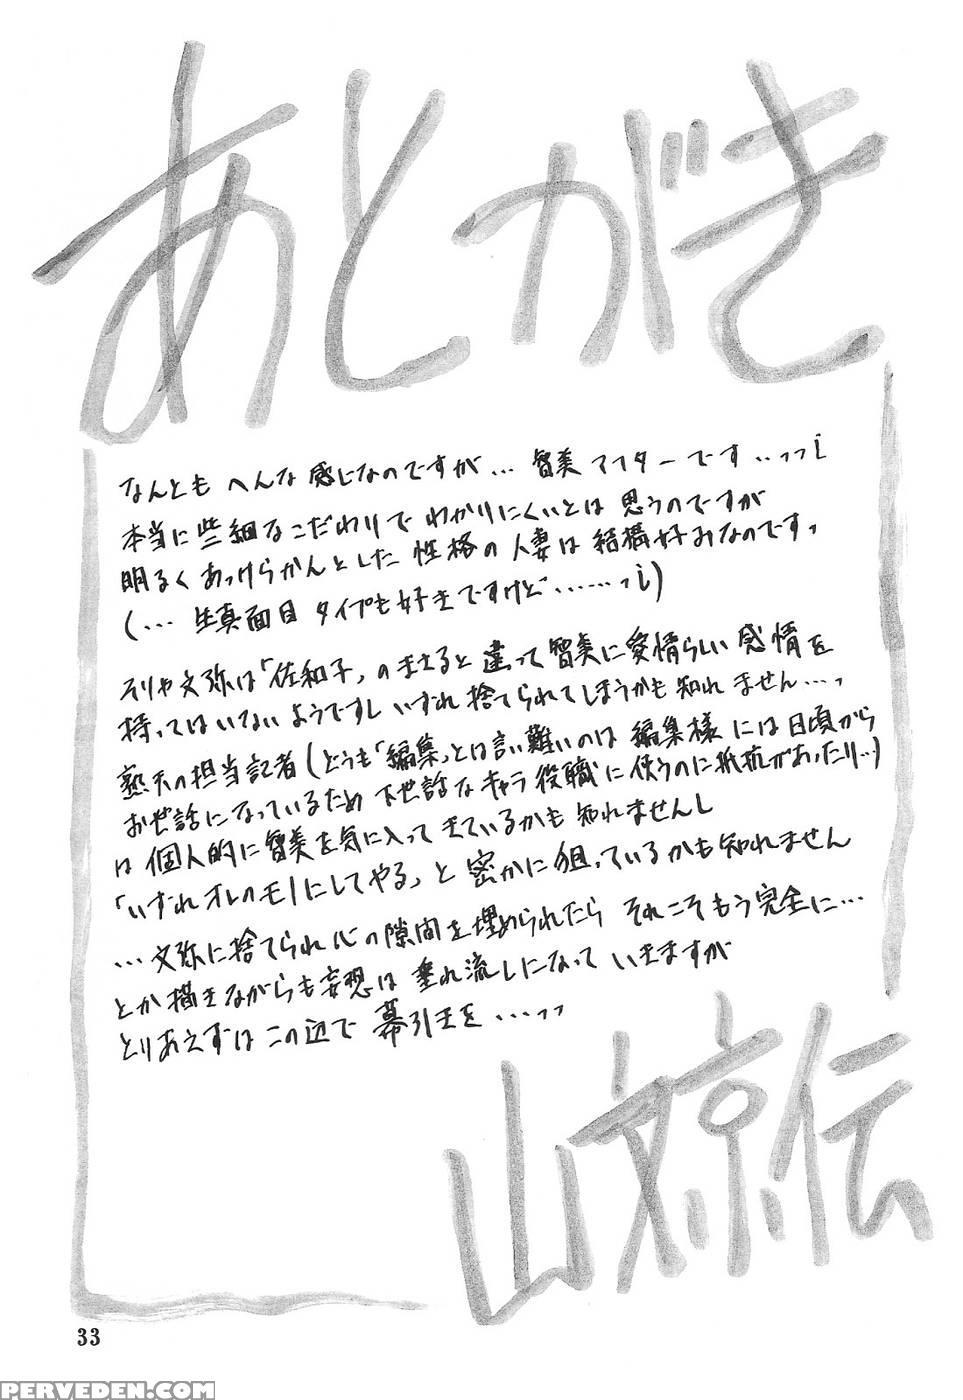 あとがき
なんとも へんな 感じなのですが… 智美アフターです‥っっ💧
本当に些細なこだわりで わかりにくいとは 思うのですが
明るく あっけらかんとした 性格の 人妻は 結構好みなのです。
(… 生真面目 タイプも好きですけど……っ💧)
そりゃ文弥は「佐和子」のまさると違って智美に愛情らしい感情を
持ってはいないようですし いずれ捨てられてしまうかも知れません…。
熟天の担当記者(どうも「編集」とは言い難いのは 編集様には日頃から
お世話になっているため 下世話なキャラ役職に使うのに抵抗があったり…)
は 個人的に智美を気に入って きているかも 知れませんし
「いずれオレのモノにしてやる」と 密かに狙っているかも知れません
… 文弥に捨てられ心の隙間を埋められたら それこそもう完全に…
とか描きながらも妄想は 垂れ流しになって いきますが
とりあえずは この辺で 幕引きを …っっ
山文京伝
33
PERVEDEN.COM